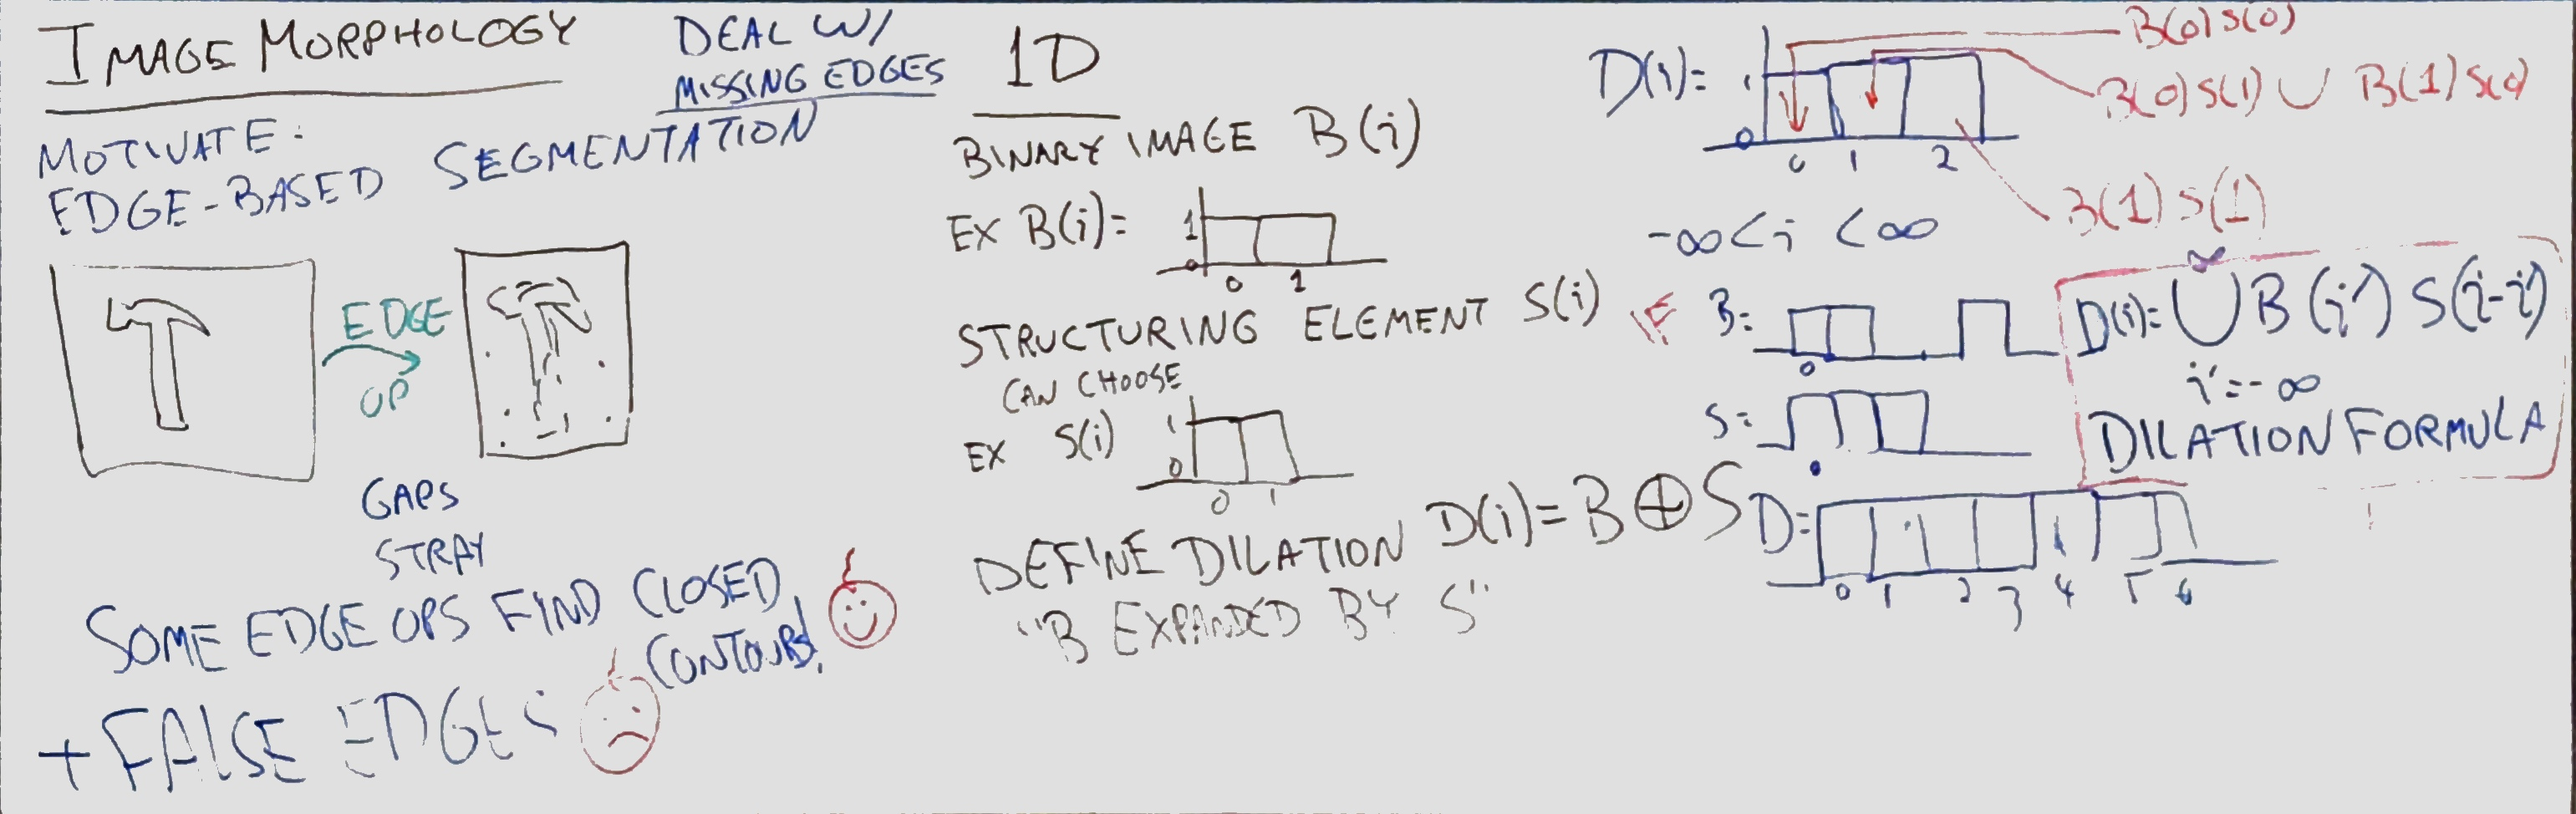 IMAGE MORPHOLOGY
DEAL W/
MISSING EDGES
MOTIVATE:
EDGE-BASED SEGMENTATION
EDGE
OP
GAPS
STRAY
SOME EDGE OPS FIND CLOSED
CONTOURS!
+ FALSE EDGES
1D
BINARY IMAGE B(i)
EX B(i)=
1
0
0 1
STRUCTURING ELEMENT S(i)
CAN CHOOSE
EX S(i)
1
0
0 1
DEFINE DILATION D(i)= B ⊕ S
"B EXPANDED BY S"
D(i)=
1
0
0 1 2
B(0)S(0)
B(0)S(1) ∪ B(1)S(0)
B(1)S(1)
-∞<i<∞
IF B=
0
S=
0
D=
0 1 2 3 4 5 6
∞
D(i)= ∪ B(i')S(i-i')
i'=-∞
DILATION FORMULA